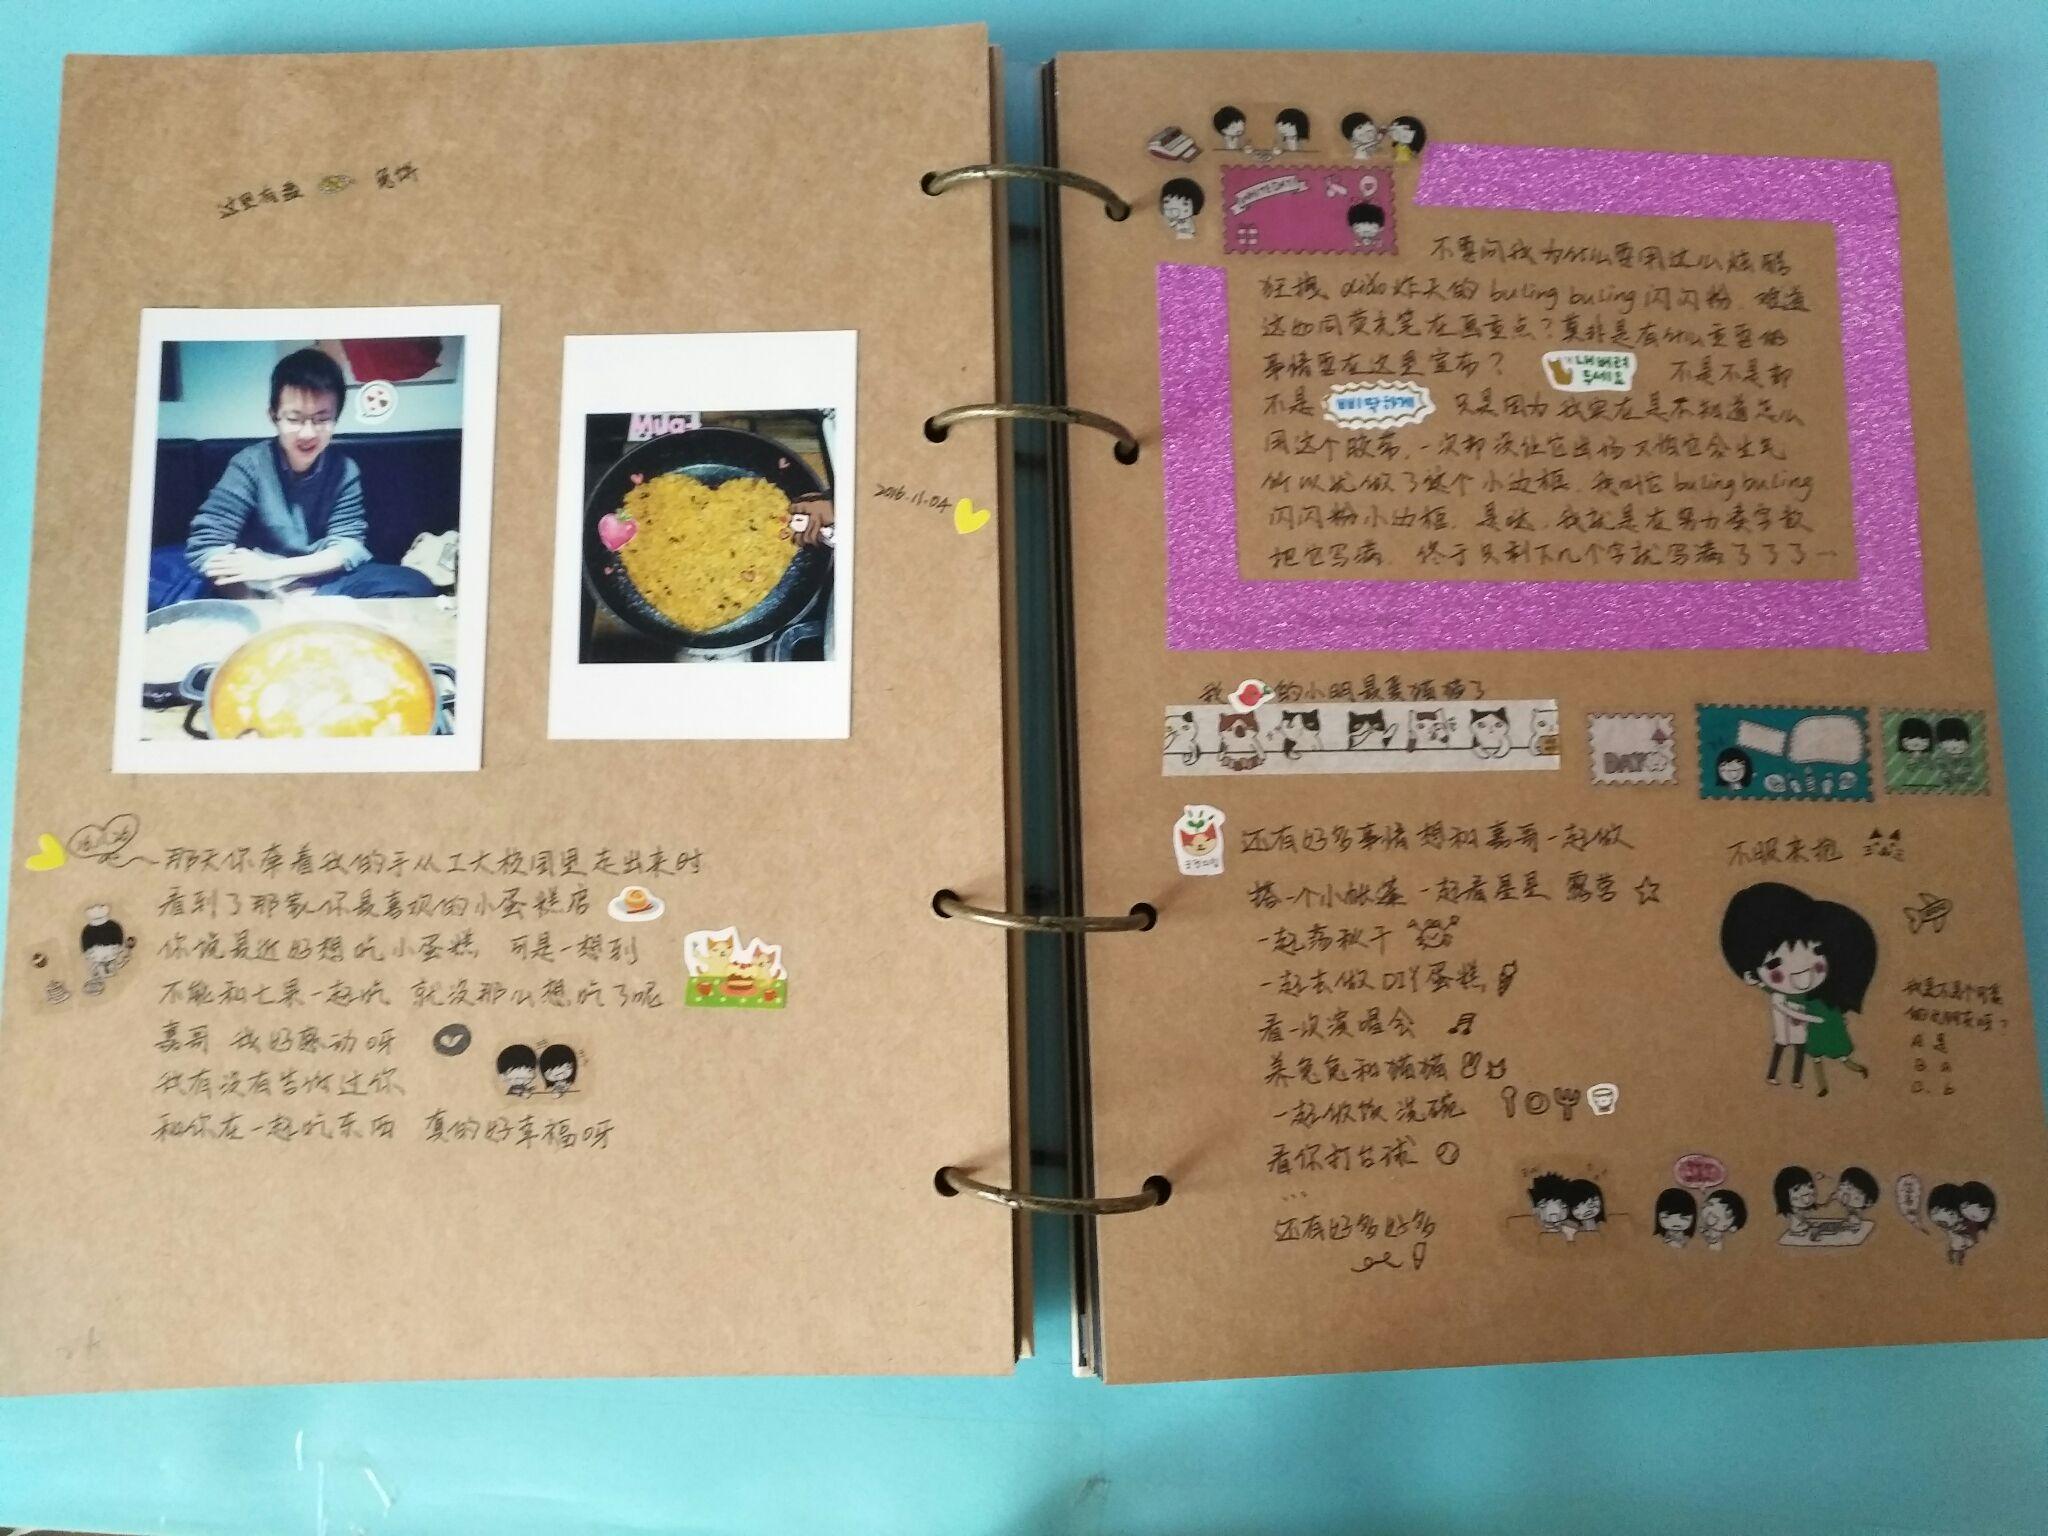 这里有盘 兔饼
Mua~!
2016.11.04
那天你牵着我的手从工大校园里走出来时
看到了那家你最喜欢的小蛋糕店
你说最近好想吃小蛋糕 可是一想到
不能和七果一起吃 就没那么想吃了呢
嘉哥 我好感动呀
我有没有告诉过你
和你在一起吃东西 真的好幸福呀
WHITE DAY
不要问我为什么要用这么炫酷
狂拽 diǎo炸天的 buling buling 闪闪粉. 难道
这如同荧光笔在画重点? 莫非是有什么重要的
事情要在这里宣布? 내버려두세요 不是不是都
不是 삐딱하게 只是因为我实在是不知道怎么
用这个胶带, 一次都没让它出场又怕它会生气
所以就做了这个小边框. 我叫它 buling buling
闪闪粉小边框. 是哒, 我就是在努力凑字数
把它写满. 终于只剩下几个字就写满了了了…
我 的小明最爱猫猫了
DAY
还有好多事情想和嘉哥一起做
不服来抱
搭一个小帐篷 一起看星星 露营
一起荡秋千
一起去做DIY蛋糕
看一次演唱会
养兔兔和猫猫
一起做饭 洗碗
看你打台球
...
还有好多好多
我是不是个可爱
的女朋友呀?
A 是
B a
C. b